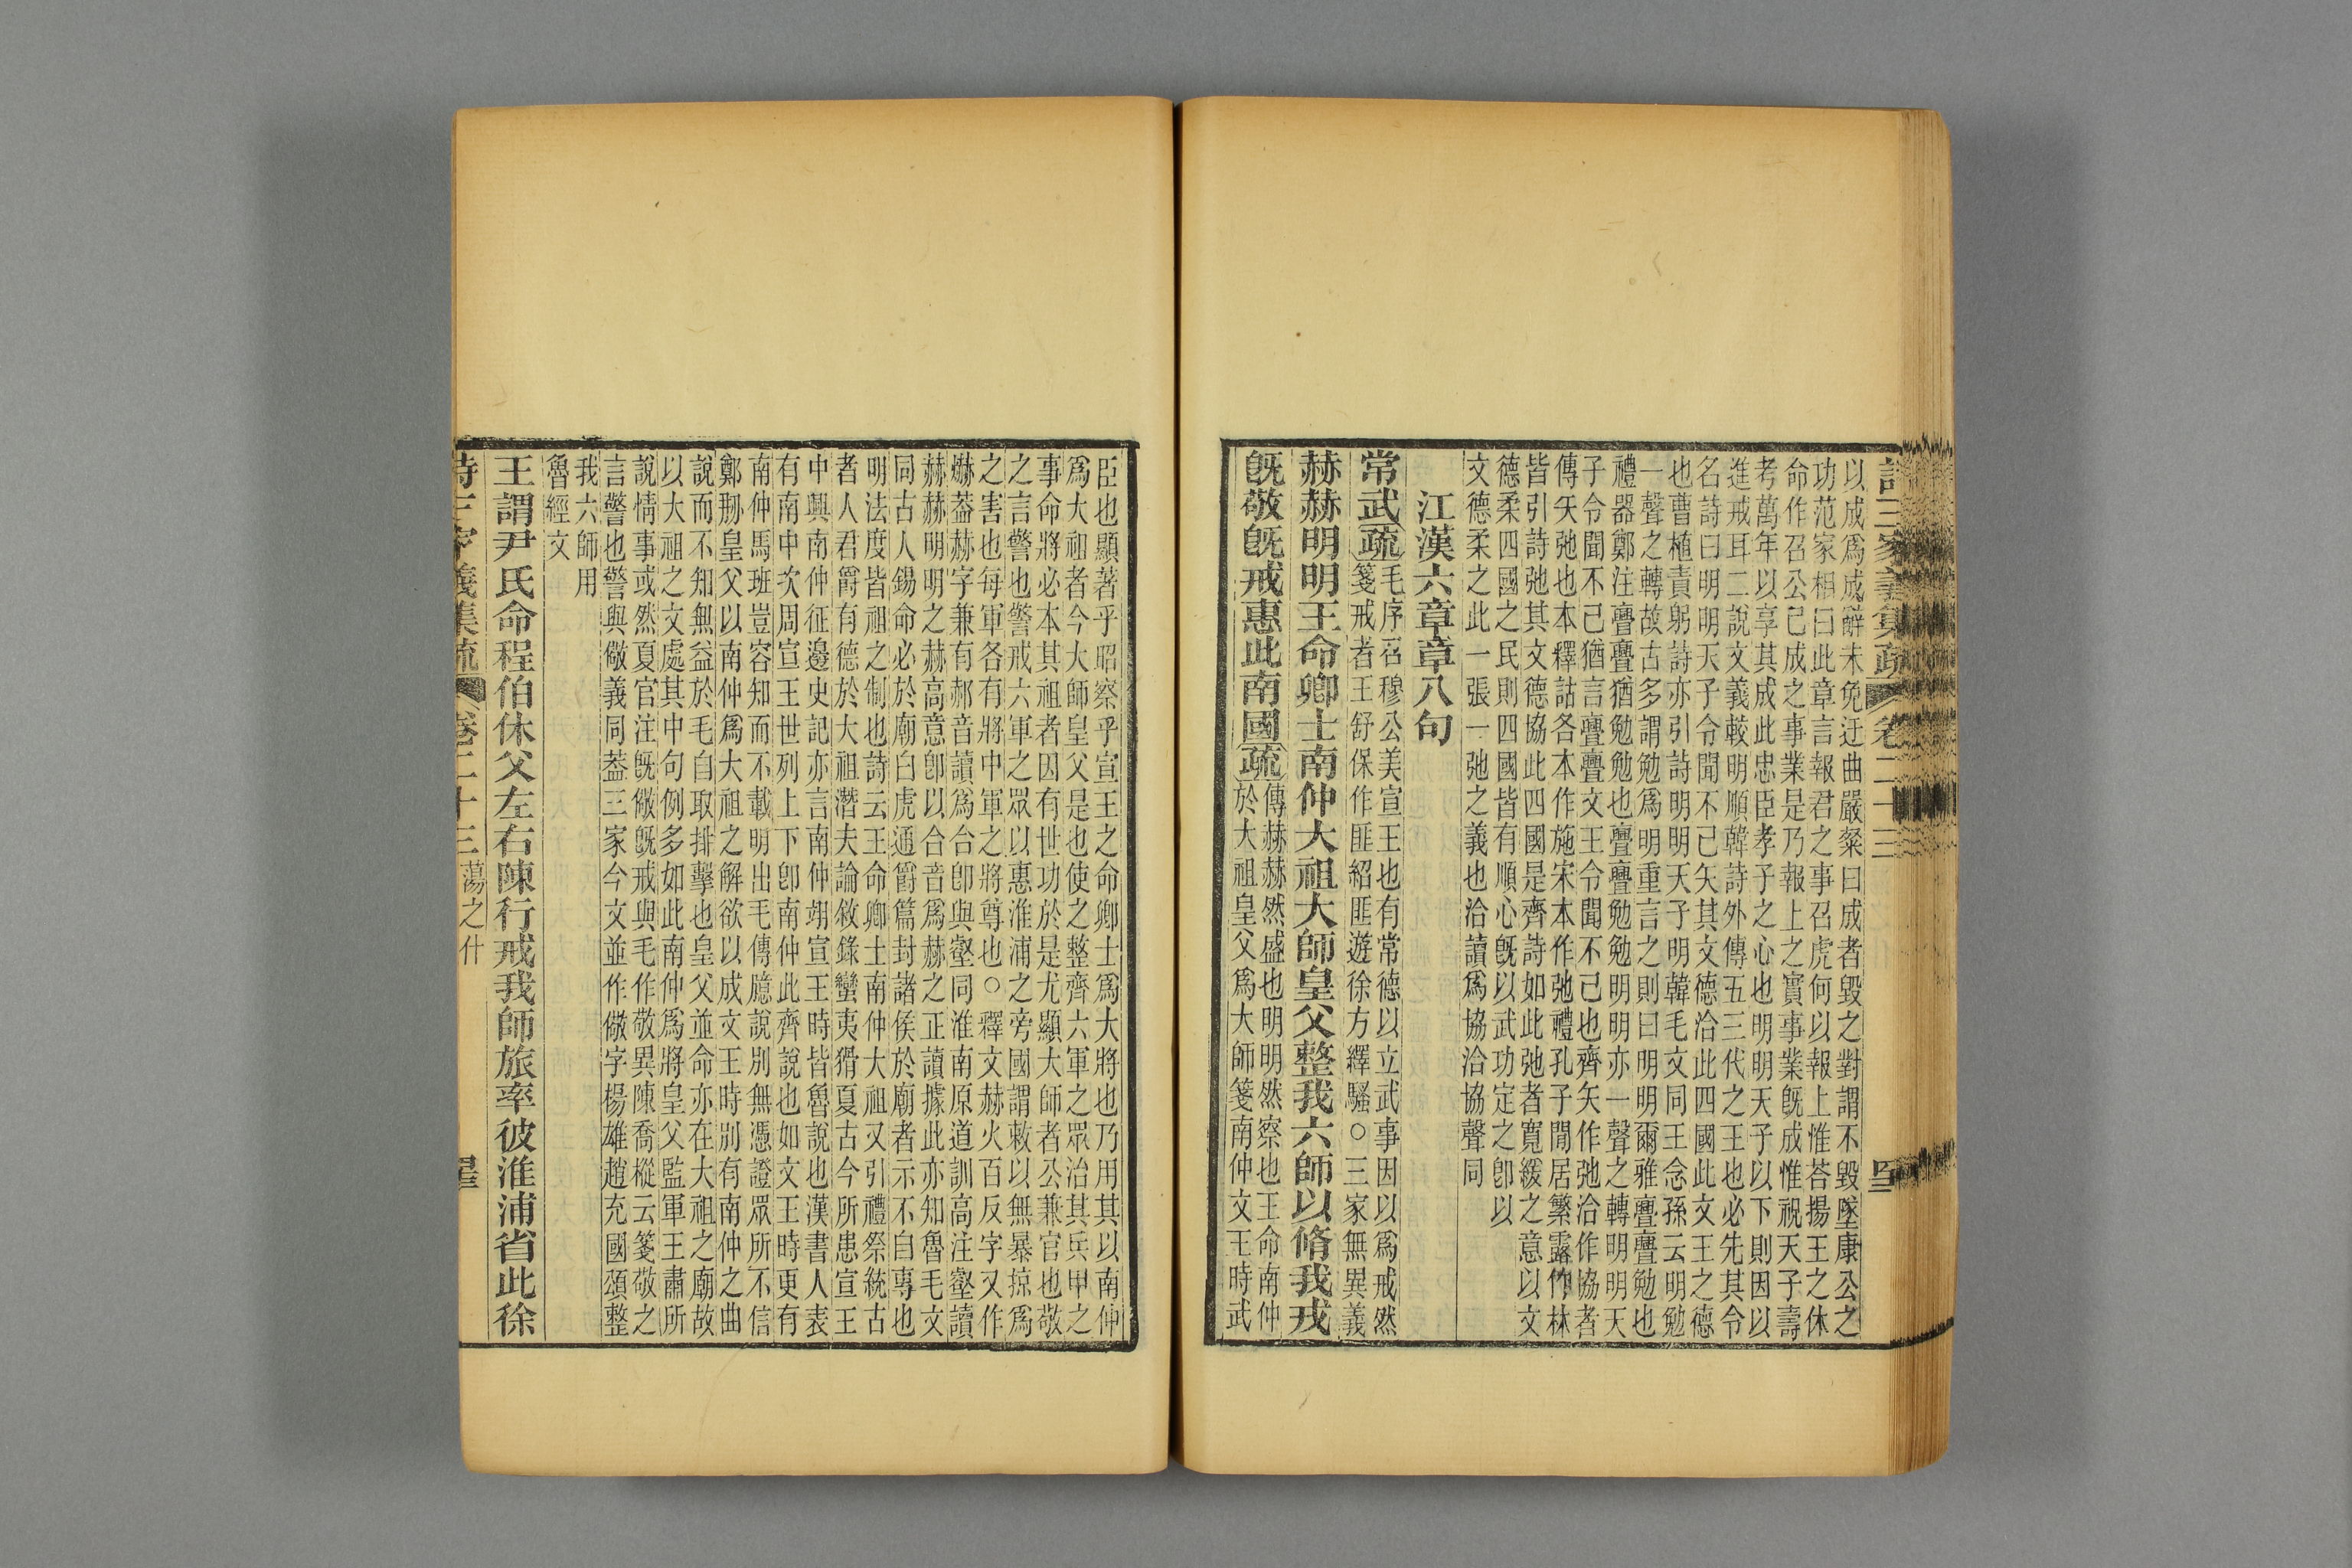 詩三家義集疏 卷二十三
以成爲成辭未免迂曲嚴粲曰成者毀之對謂不毀墜康公之
功范家相曰此章言報君之事召虎何以報上惟荅揚王之休
命作召公已成之事業是乃報上之實事業旣成惟祝天子壽
考萬年以享其成此忠臣孝子之心也明明天子以下則因以
進戒耳二說文義較明順韓詩外傳五三代之王也必先其令
名詩曰明明天子令聞不已矢其文德洽此四國此文王之德
也曹植責躬詩亦引詩明明天子明韓毛文同王念孫云明勉
一聲之轉故古多謂勉爲明重言之則曰明明爾雅亹亹勉也
禮器鄭注亹亹猶勉勉也亹亹勉勉明明亦一聲之轉明明天
子令聞不已猶言亹亹文王令聞不已也齊矢作弛洽作協者
傳矢弛也本釋詁各本作施宋本作弛禮孔子閒居繁露作林
皆引詩弛其文德協此四國是齊詩如此弛者寬緩之意以文
德柔四國之民則四國皆有順心旣以武功定之卽以
文德柔之此一張一弛之義也洽讀爲協洽協聲同
江漢六章章八句
常武疏毛序召穆公美宣王也有常德以立武事因以爲戒然
箋戒者王舒保作匪紹匪遊徐方繹騷○三家無異義
赫赫明明王命卿士南仲大祖大師皇父整我六師以脩我戎
旣敬旣戒惠此南國疏傳赫赫然盛也明明然察也王命南仲
於大祖皇父爲大師箋南仲文王時武
臣也顯著乎昭察乎宣王之命卿士爲大將也乃用其以南仲
爲大祖者今大師皇父是也使之整齊六軍之眾治其兵甲之
事命將必本其祖者因有世功於是尤顯大師者公兼官也敬
之言警也警戒六軍之眾以惠淮浦之旁國謂敕以無暴掠爲
之害也每軍各有將中軍之將尊也○釋文赫火百反字又作
爀葢赫字兼有郝音讀爲台卽與壑同淮南原道訓高注壑讀
赫赫明明之赫高意卽以合音爲赫之正讀據此亦知魯毛文
同古人錫命必於廟白虎通爵篇封諸侯於廟者示不自專也
明法度皆祖之制也詩云王命卿士南仲大祖又引禮祭統古
者人君爵有德於大祖潛夫論敘錄蠻夷猾夏古今所患宣王
中興南仲征邊史記亦言南仲翊宣王時皆魯說也漢書人表
有南中次周宣王世列上下卽南仲此齊說也如文王時更有
南仲馬班豈容知而不載明出毛傳臆說別無憑證眾所不信
鄭刱皇父以南仲爲大祖之解欲以成文王時別有南仲之曲
說而不知無益於毛自取排擊也皇父並命亦在大祖之廟故
以大祖之文處其中句例多如此南仲爲將皇父監軍王肅所
說情事或然夏官注旣儆旣戒與毛作敬異陳喬樅云箋敬之
言警也警與儆義同葢三家今文並作儆字楊雄趙充國頌整
我六師用
魯經文
王謂尹氏命程伯休父左右陳行戒我師旅率彼淮浦省此徐
詩三家義集疏 卷二十三 蕩之什